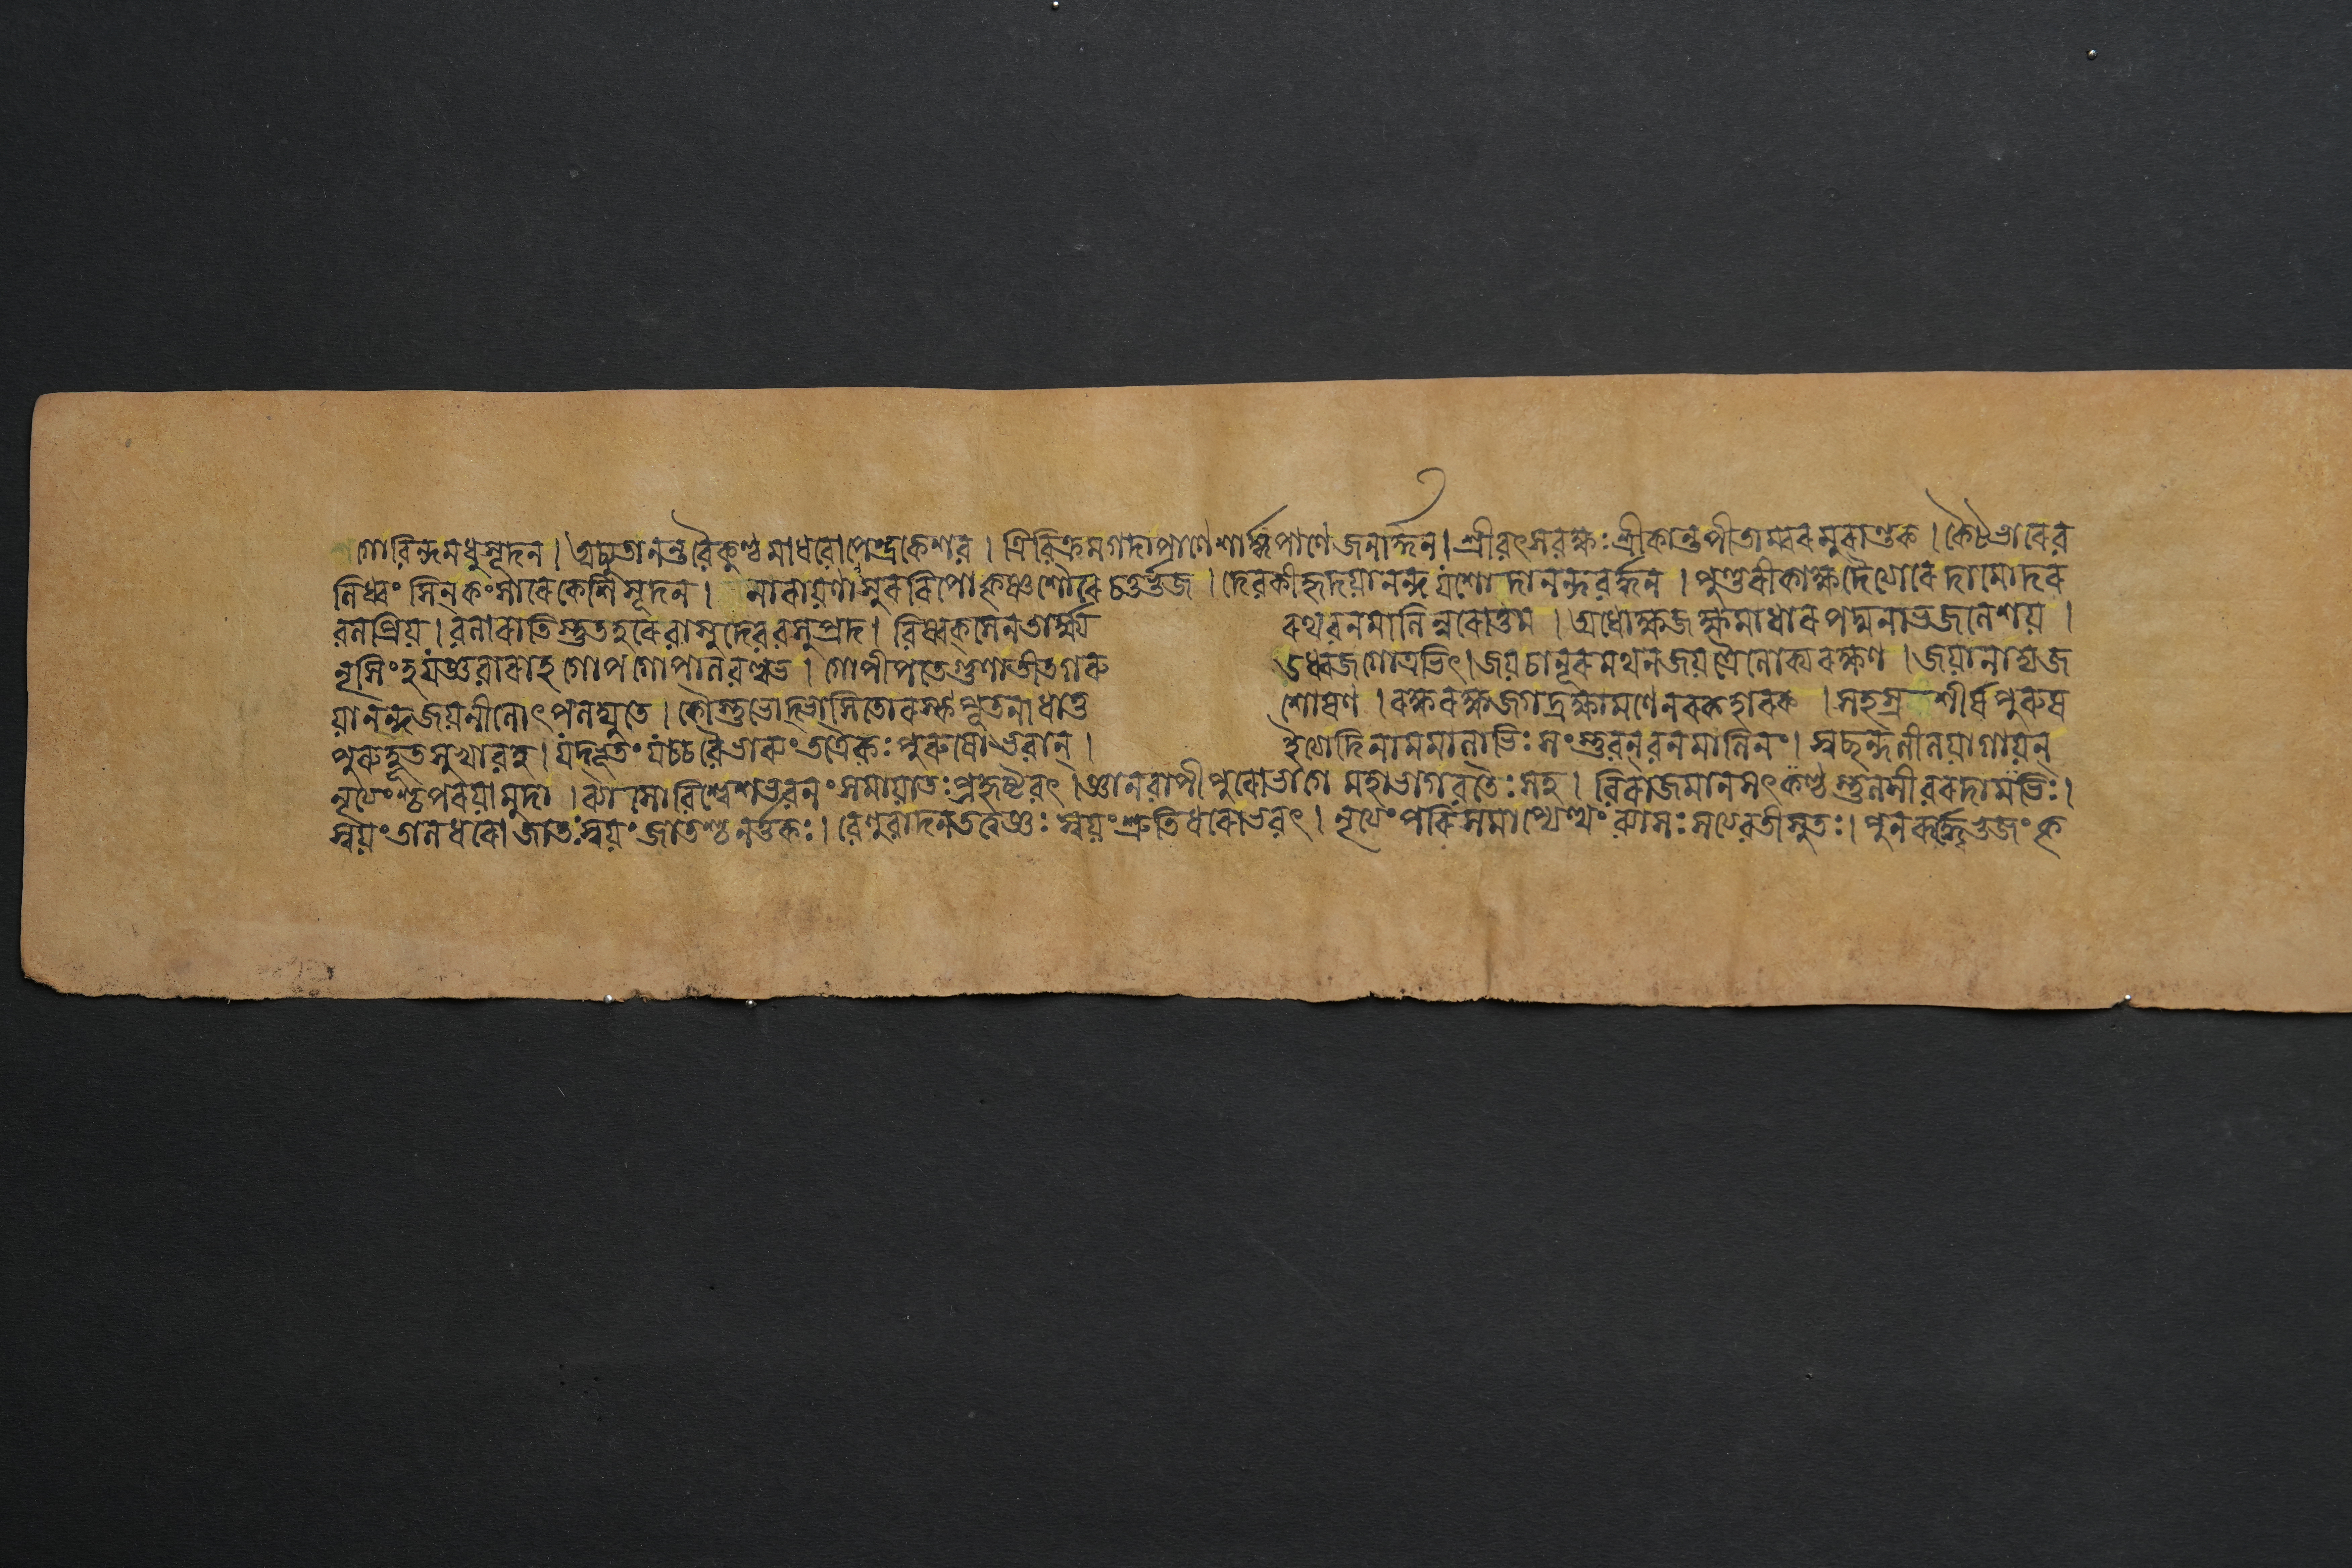 গোবিন্দমধুসূদন। অচ্যুতানন্তবৈকুণ্ঠমাধবোপেন্দ্রকেশব। ত্রিবিক্রমগদাপাণেশার্ঙ্গপাণেজনার্দ্দন। শ্রীবৎসবক্ষঃশ্রীকান্তপীতাম্বরমুরান্তক। কৈটভারেব
লিধ্বংসিন্কংসারেকেশিসূদন। নারায়ণাসুররিপোকৃষ্ণশৌরেচতুর্ভুজ। দেবকীহৃদয়ানন্দযশোদানন্দবর্দ্ধন। পুণ্ডরীকাক্ষদৈত্যারেদামোদর
বলপ্রিয়। বলারাতিস্তুতহরেবাসুদেববসুপ্রদ। বিষ্বক্সেনতার্ক্ষ্য রথবনমালিন্নরোত্তম। অধোক্ষজক্ষমাধারপদ্মনাভজলেশয়।
নৃসিংহযজ্ঞবারাহগোপগোপালবল্লভ। গোপীপতেগুণাতীতগরু ডধ্বজগোত্রভিৎ। জয়চাণূরমথনজয়ত্রৈলোক্যরক্ষণ। জয়ানাদ্যজ
য়ানন্দজয়নীলোৎপলদ্যুতে। কৌস্তুভোদ্ভাসিতোরস্কপূতনাধাতু শোষণ। রক্ষরক্ষজগদ্রক্ষামণেনরকহারক। সহস্রশীর্ষপুরুষ
পুরুহূতসুখাবহ। যদ্ভূতংযচ্চবৈভাব্যংতত্রৈকঃপুরুষোভবান্। ইত্যেদিনামমালাভিঃসংস্তুবন্বনমালিনং। স্বছন্দলীলয়াগায়ন্
নৃত্যংশ্চপরয়ামুদা। ব্যাসোবিশ্বেশভবনংসমায়াতঃপ্রহৃষ্টবৎ। জ্ঞানবাপীপুরোভাগেমহাভাগবতৈঃসহ। বিরাজমানসৎকণ্ঠস্তুলসীবরদামভিঃ।
স্বয়ংতালধরোজাতঃস্বয়ংজাতশ্চনর্ত্তকঃ। বেণুবাদনতত্বজ্ঞঃস্বয়ংশ্রুতিধরোভবৎ। নৃত্যংপরিসমাপ্যেত্থংব্যাসঃসত্যবতীসুতঃ। পুনরূর্দ্ধভুজংকৃ